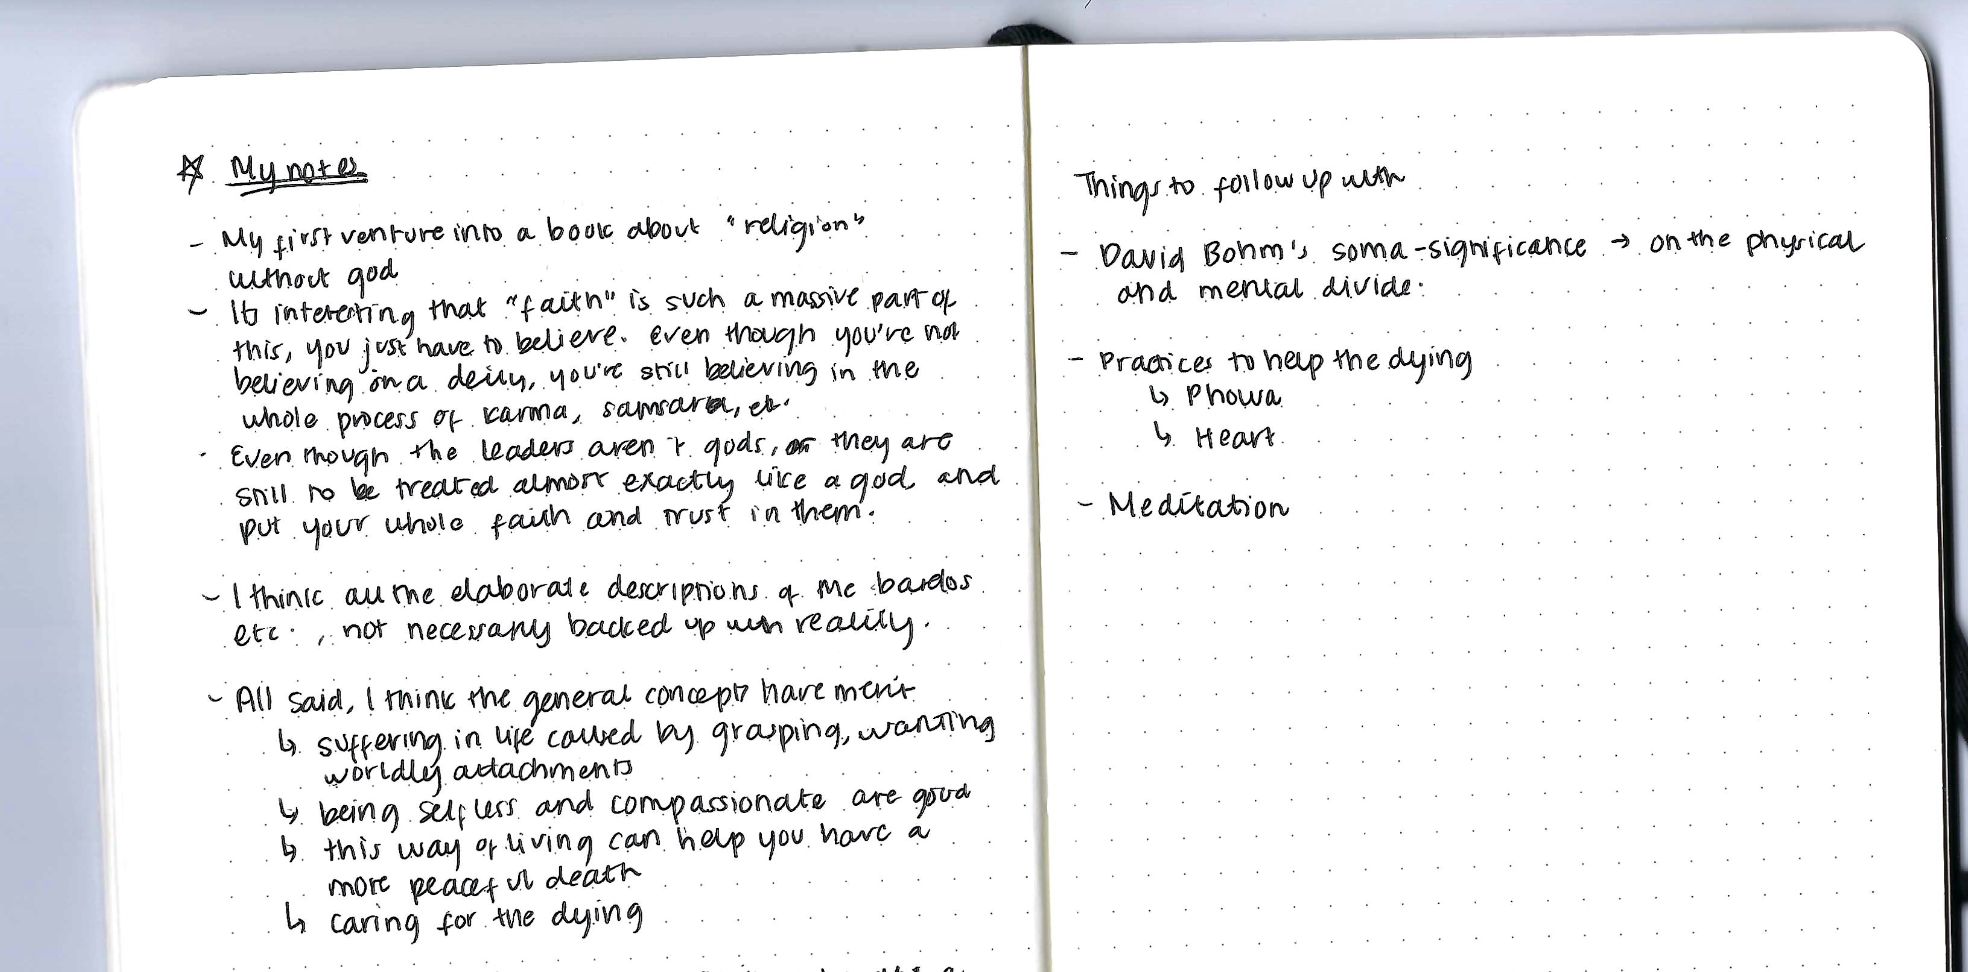 ☆ My notes
- My first venture into a book about "religion"
without god
- Its interesting that "faith" is such a massive part of
this, you just have to believe. Even though you're not
believing on a deity, you're still believing in the
whole process of karma, samsara, etc.
· Even though the leaders aren't gods, they are
still to be treated almost exactly like a god and
put your whole faith and trust in them.
- I think all the elaborate descriptions of the bardos
etc., not necessarily backed up with reality.
- All said, I think the general concepts have merit
↳ suffering in life caused by grasping, wanting
worldly attachments
↳ being selfless and compassionate are good
↳ this way of living can help you have a
more peaceful death
↳ caring for the dying
Things to follow up with
- David Bohm's soma-significance → on the physical
and mental divide.
- Practices to help the dying
↳ Phowa
↳ Heart
- Meditation